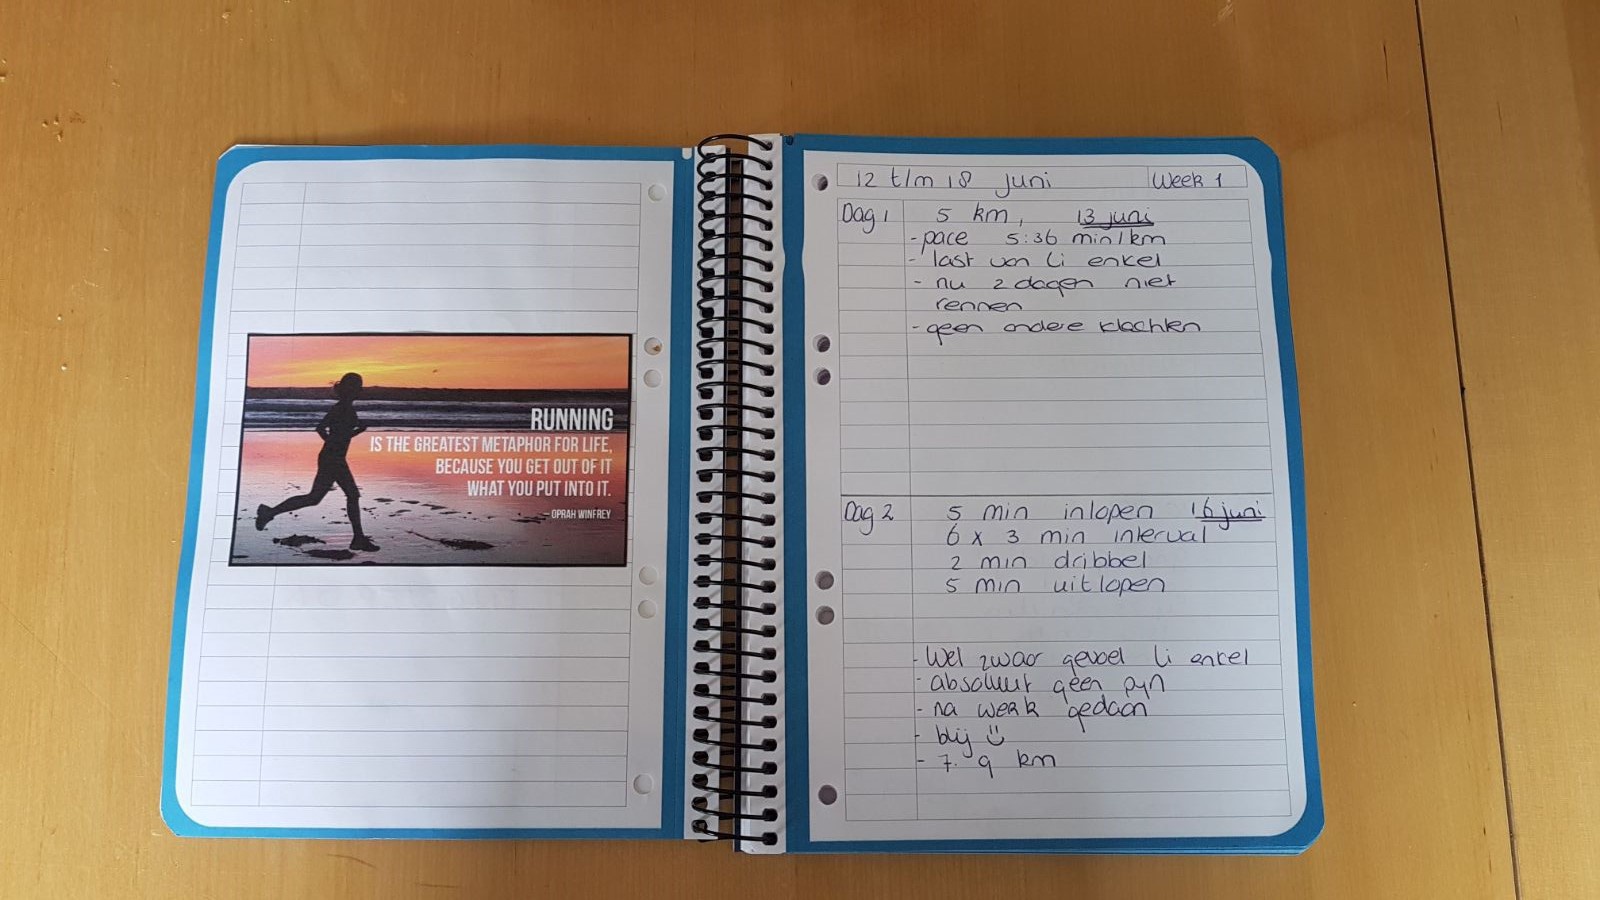 RUNNING
IS THE GREATEST METAPHOR FOR LIFE,
BECAUSE YOU GET OUT OF IT
WHAT YOU PUT INTO IT.
- OPRAH WINFREY
12 t/m 18 juni Week 1
Dag 1 5 km, 13 juni
- pace 5:36 min/km
- last van li enkel
- nu 2 dagen niet
rennen
- geen andere klachten
Dag 2 5 min inlopen 16 juni
6 x 3 min interval
2 min dribbel
5 min uitlopen
- Wel zwaar gevoel li enkel
- absoluut geen pyn
- na werk gedaan
- blij
- 7.9 km